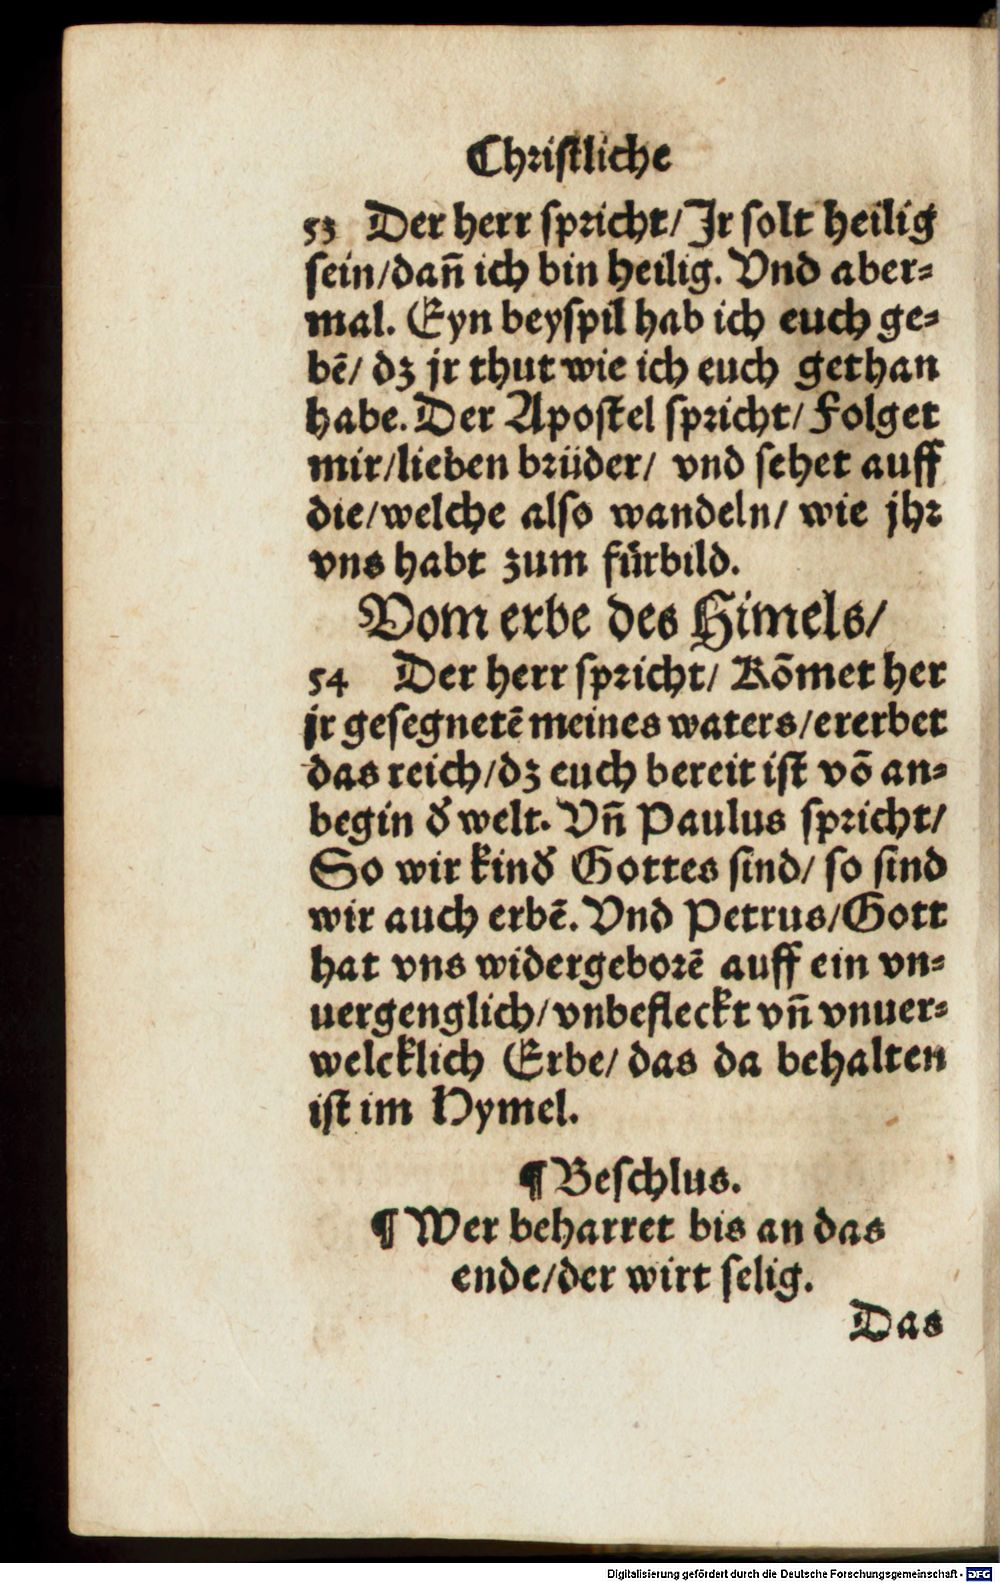 Christliche
53 Der herr spricht/ Jr solt heilig
sein/dañ ich bin heilig. Vnd aber⸗
mal. Eyn beyspil hab ich euch ge⸗
bẽ/ dz jr thut wie ich euch gethan
habe. Der Apostel spricht/ Folget
mir/lieben brüder/ vnd sehet auff
die/welche also wandeln/ wie jhr
vns habt zum fürbild.
Vom erbe des Himels/
54 Der herr spricht/ Kõmet her
jr gesegnetẽ meines waters/ererbet
das reich/dz euch bereit ist võ an⸗
begin ď welt. Vñ Paulus spricht/
So wir kinď Gottes sind/ so sind
wir auch erbẽ. Vnd Petrus/Gott
hat vns widergeborẽ auff ein vn⸗
uergenglich/vnbefleckt vñ vnuer⸗
welcklich Erbe/ das da behalten
ist im Hymel.
¶ Beschlus.
¶ Wer beharret bis an das
ende/der wirt selig.
Das
Digitalisierung gefördert durch die Deutsche Forschungsgemeinschaft - DFG